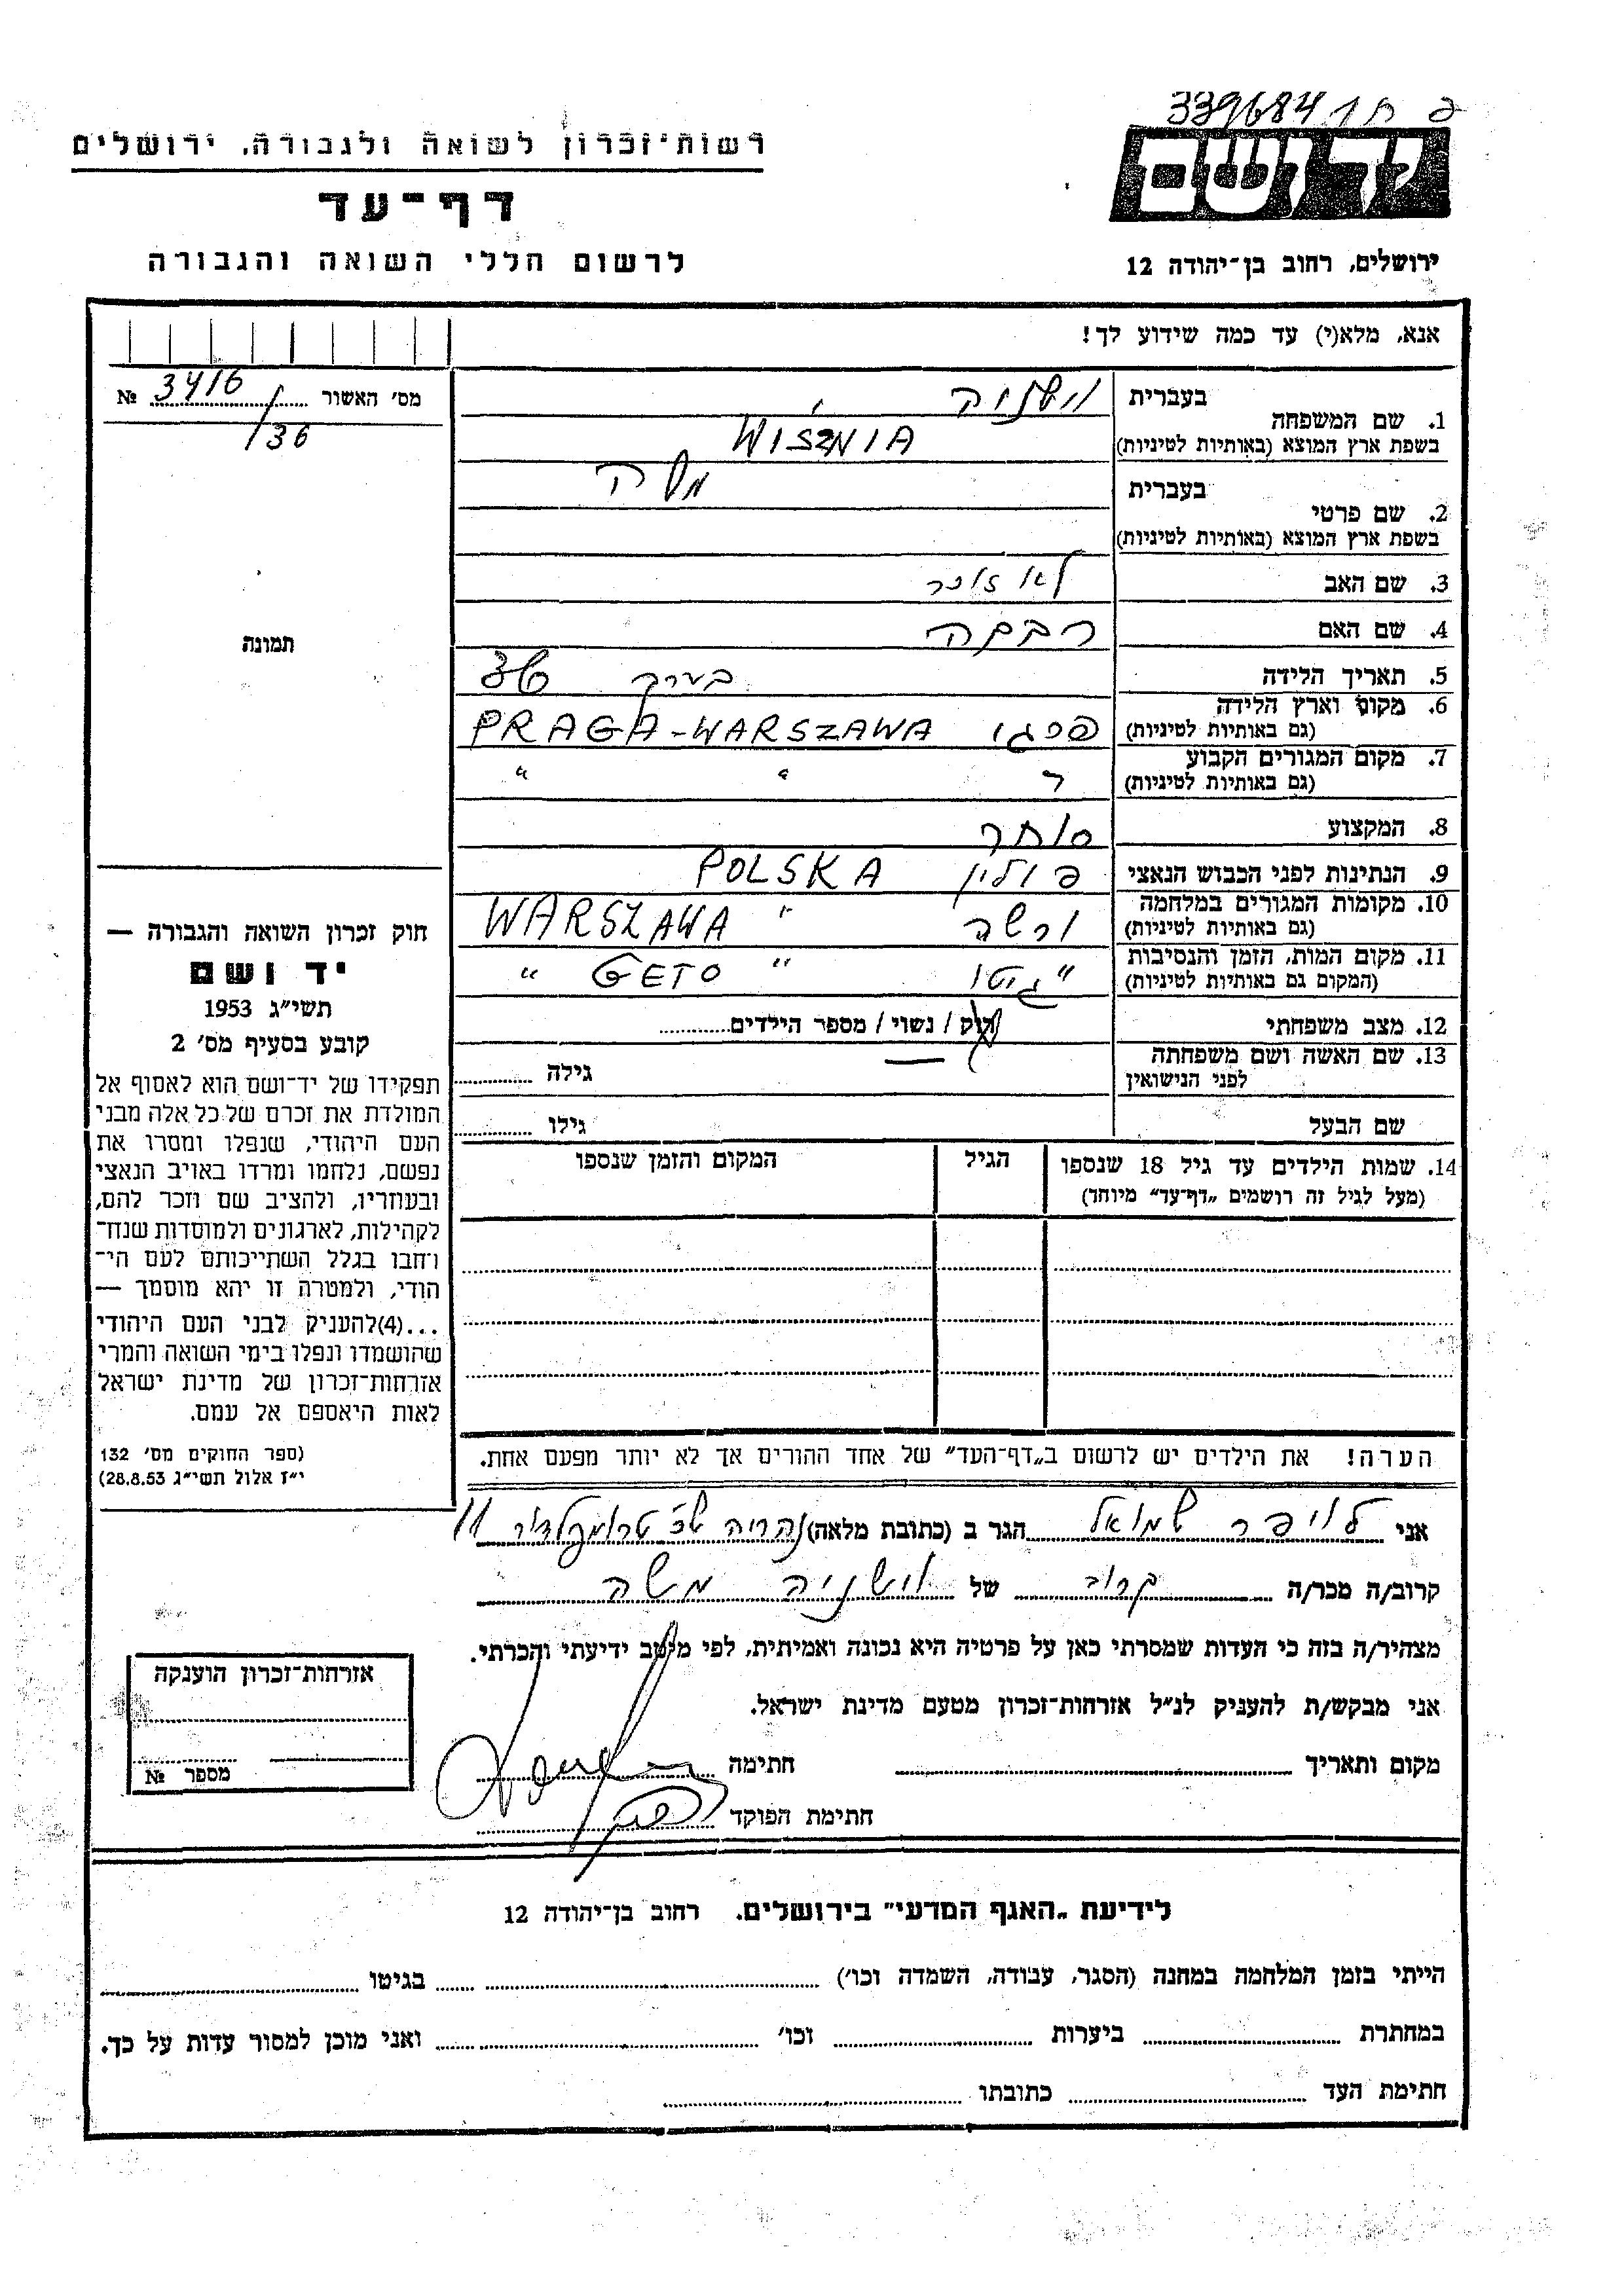 339684
רשות־זכרון לשואה ולגבורה, ירושלים
יד ושם
דף־עד
לרשום חללי השואה והגבורה
ירושלים, רחוב בן־יהודה 12
אנא, מלא(י) עד כמה שידוע לך!
מס׳ האשור № 3416/36
1. שם המשפחה בעברית
WISZNIA בשפת ארץ המוצא (באותיות לטיניות)
2. שם פרטי בעברית משה
בשפת ארץ המוצא (באותיות לטיניות)
3. שם האב
4. שם האם רבקה
תמונה
5. תאריך הלידה בערך
6. מקום וארץ הלידה (גם באותיות לטיניות) PRAGA-WARSZAWA
7. מקום המגורים הקבוע (גם באותיות לטיניות) " "
8. המקצוע סוחר
9. הנתינות לפני הכבוש הנאצי פולין POLSKA
10. מקומות המגורים במלחמה (גם באותיות לטיניות) ורשה " WARSZAWA
11. מקום המות, הזמן והנסיבות (המקום גם באותיות לטיניות) " גיטו " GETO "
12. מצב משפחתי רוק / נשוי / מספר הילדים
13. שם האשה ושם משפחתה לפני הנישואין גילה
שם הבעל גילו
14. שמות הילדים עד גיל 18 שנספו הגיל המקום והזמן שנספו
(מעל לגיל זה רושמים „דף־עד״ מיוחד)
חוק זכרון השואה והגבורה —
יד ושם
תשי״ג 1953
קובע בסעיף מס׳ 2
תפקידו של יד־ושם הוא לאסוף אל
המולדת את זכרם של כל אלה מבני
העם היהודי, שנפלו ומסרו את
נפשם, נלחמו ומרדו באויב הנאצי
ובעוזריו, ולהציב שם וזכר להם,
לקהילות, לארגונים ולמוסדות שנח־
רחבו בגלל השתייכותם לעם הי־
הודי, ולמטרה זו יהא מוסמך —
...(4)להעניק לבני העם היהודי
שהושמדו ונפלו בימי השואה והמרי
אזרחות־זכרון של מדינת ישראל
לאות היאספם אל עמם.
(ספר החוקים מס׳ 132
י״ז אלול תשי״ג 28.8.53)
הערה! את הילדים יש לרשום ב„דף־העד״ של אחד ההורים אך לא יותר מפעם אחת.
אני לויפר שמואל הגר ב (כתובת מלאה) נהריה טרומפלדור 11
קרוב/ה מכר/ה קרוב של וישניה משה
מצהיר/ה בזה כי העדות שמסרתי כאן על פרטיה היא נכונה ואמיתית, לפי מיטב ידיעתי והכרתי.
אני מבקש/ת להעניק לנ״ל אזרחות־זכרון מטעם מדינת ישראל.
מקום ותאריך חתימה
חתימת הפוקד
אזרחות־זכרון הוענקה
מספר №
לידיעת „האגף המדעי״ בירושלים, רחוב בן־יהודה 12
הייתי בזמן המלחמה במחנה (הסגר, עבודה, השמדה וכו׳) בגיטו
במחתרת ביערות וכו׳ ואני מוכן למסור עדות על כך.
חתימת העד כתובתו